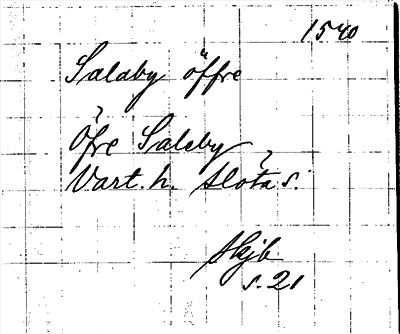 1540
Salaby öffre
Öfre Saleby
Vart. h. Slöta s.
Skjb
s. 21